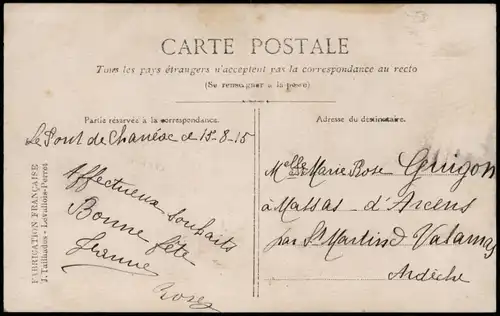 CARTE POSTALE
Tous les pays étrangers n'acceptent pas la correspondance au recto
(Se renseigner à la poste)
Partie réservée à la correspondance.
Adresse du destinataire.
Le Pont de Chanéac ce 13-8-15
Affectueux souhaits
Bonne fête
Jeanne
Melle Marie Rose Guigon
à Massas d'Arcens
par St Martin d Valamas
Ardèche
FABRICATION FRANÇAISE
J. Taillandus - Levallois-Perret